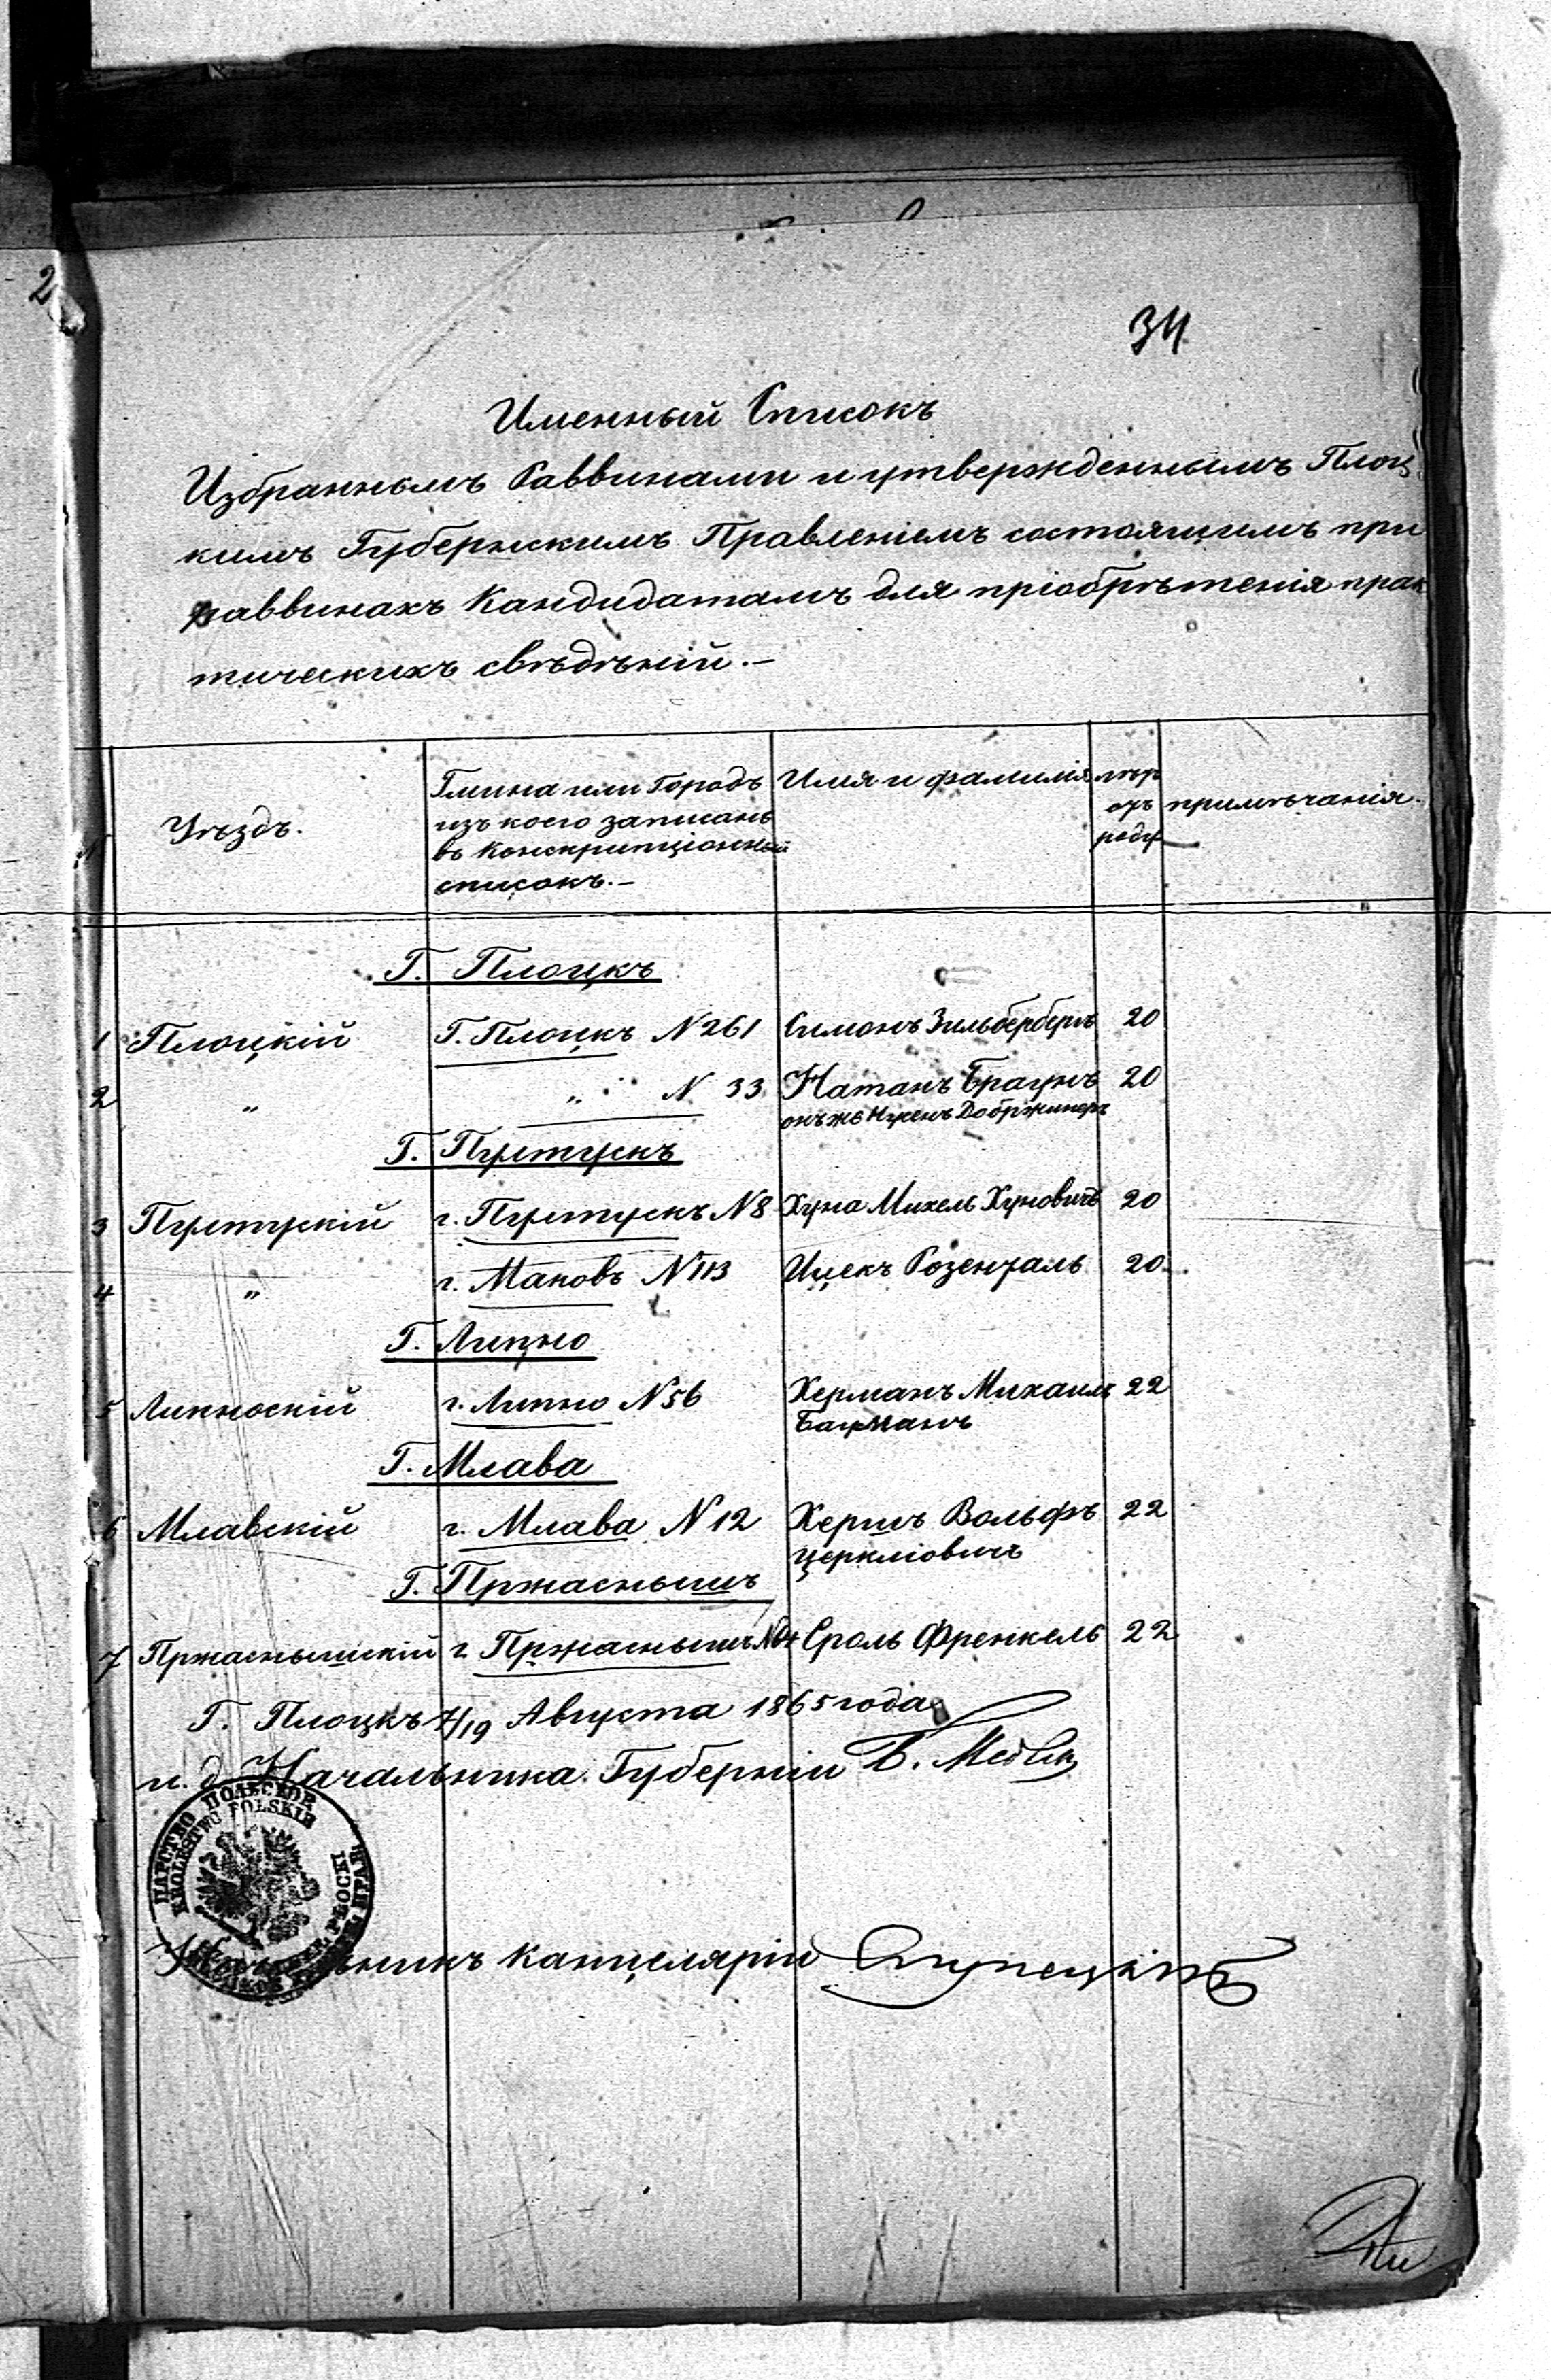 2
34
Именный Списокъ
Избраннымъ Раввинами и утвержденнымъ Плоц
кимъ Губернскимъ Правленіемъ состоящимъ при
раввинахъ Кандидатамъ для пріобрѣтенія прак
тическихъ свѣдѣній.—
Уѣздъ. Гмина или Городъ изъ коего записанъ въ Конскрипціонный списокъ.— Имя и фамилія лѣтъ отъ роду примѣчанія.
Г. Плоцкъ
1 Плоцкій Г. Плоцкъ N 261 Симонъ Зильбербергъ 20
2 „ „ N 33 Натанъ Браунъ 20
онъ же Нусенъ Добржинеръ
Г. Пултускъ
3 Пултускій г. Пултускъ N 8 Хуна Михель Хуновичъ 20
4 „ г. Маковъ N 113 Ицекъ Розенталь 20
Г. Липно
5 Липноскій г. Липно N 56 Херманъ Михаилъ 22
Бауманъ
Г. Млава
6 Млавскій г. Млава N 12 Хершъ Вольфъ 22
Церкліовичъ
Г. Пржаснышъ
7 Пржаснышскій г Пржаснышъ Сроль Френкель 22
Г. Плоцкъ 7/19 Августа 1865 года
и. д. Начальника Губерніи
ЦАРСТВО ПОЛЬСКОЕ
KRÓLESTWO POLSKIE
Начальникъ канцеляріи